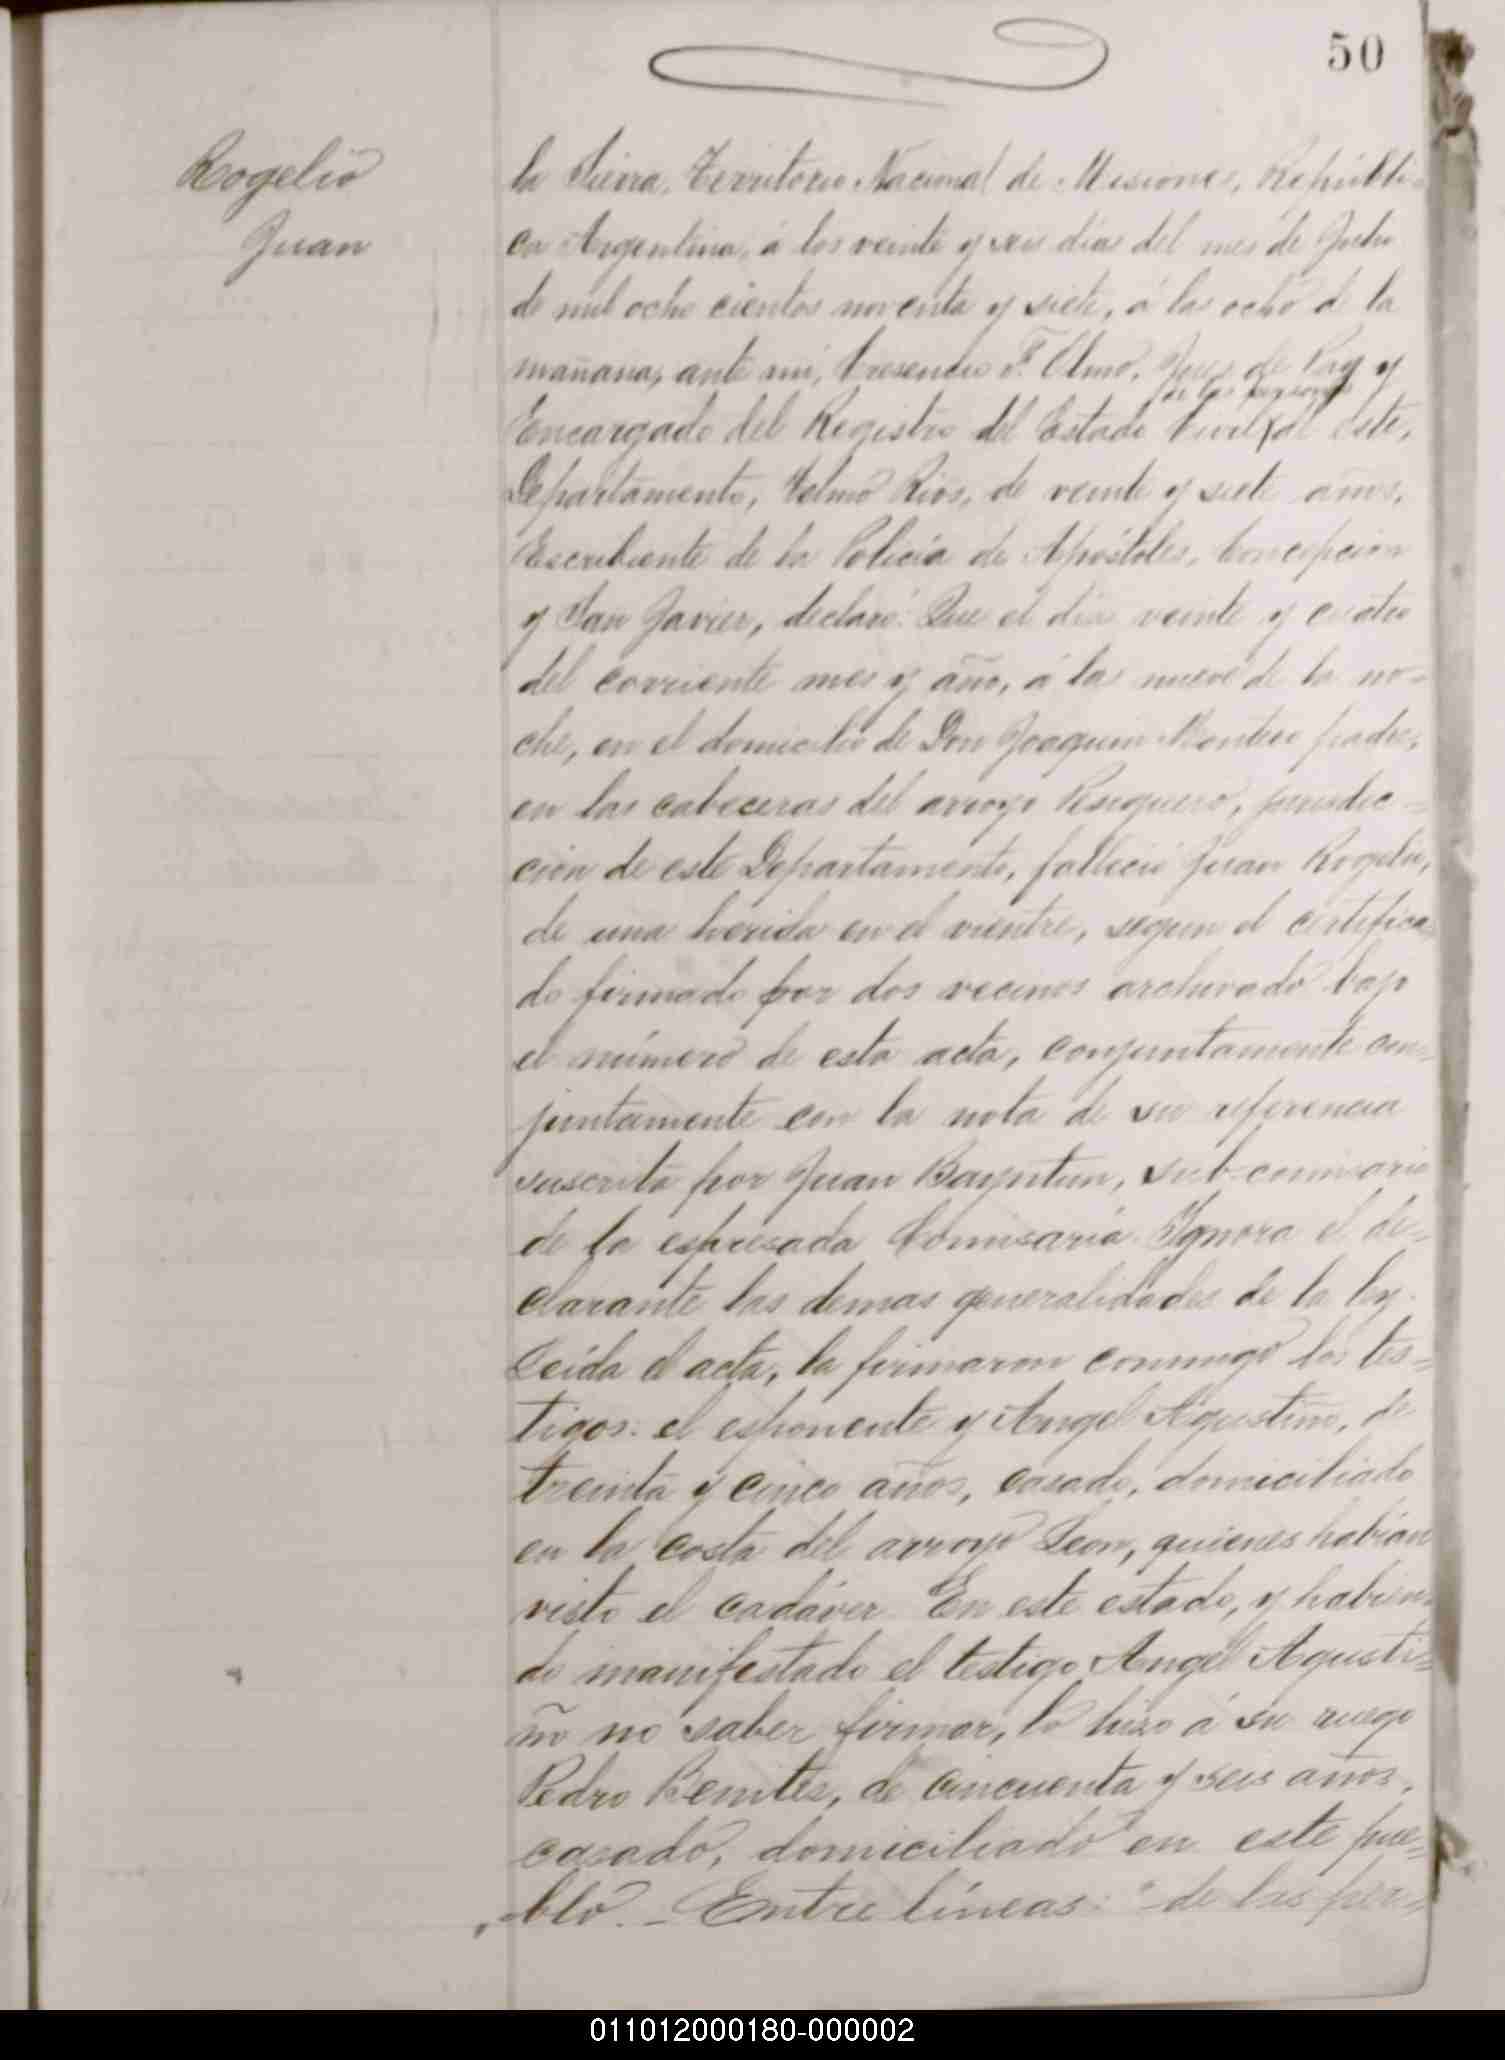 50
Rogelio
Juan
la Sierra, Territorio Nacional de Misiones, Repúbli-
ca Argentina, á los veinte y seis dias del mes de Julio
de mil ocho cientos noventa y siete, á las ocho de la
mañana, ante mi, F. Olmo, Juez de Paz y
de las personas
Encargado del Registro del Estado Civil de este
Departamento, Telmo Rios, de veinte y siete años,
Escribiente de la Policía de Apóstoles, Concepcion
y San Javier, declaró: Que el dia veinte y cuatro
del corriente mes y año, á las nueve de la no-
che, en el domicilio de Don Joaquin Monteiro padre,
en las cabeceras del arroyo Persiguero, jurisdic-
cion de este Departamento, falleció Juan Rogelio,
de una herida en el vientre, segun el certifica-
do firmado por dos vecinos archivado bajo
el número de esta acta, conjuntamente con-
juntamente con la nota de su referencia
suscrita por Juan Bayntun, sub-comisario
de la espresada Comisaría. Ignora el de-
clarante las demas generalidades de la ley.
Leida el acta, la firmaron conmigo los tes-
tigos: el esponente y Angel Agustiño, de
treinta y cinco años, casado, domiciliado
en la costa del arroyo Leon, quienes habian
visto el cadáver. En este estado, y habien-
do manifestado el testigo Angel Agusti-
ño no saber firmar, lo hizo á su ruego
Pedro Benites, de cincuenta y seis años,
casado, domiciliado en este pue-
blo. - Entre líneas: "de las per-
011012000180-000002